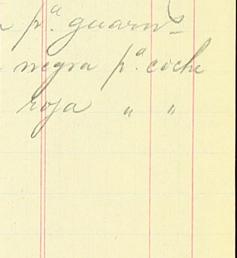 pª. guarns
negra pª. coche
roja " "